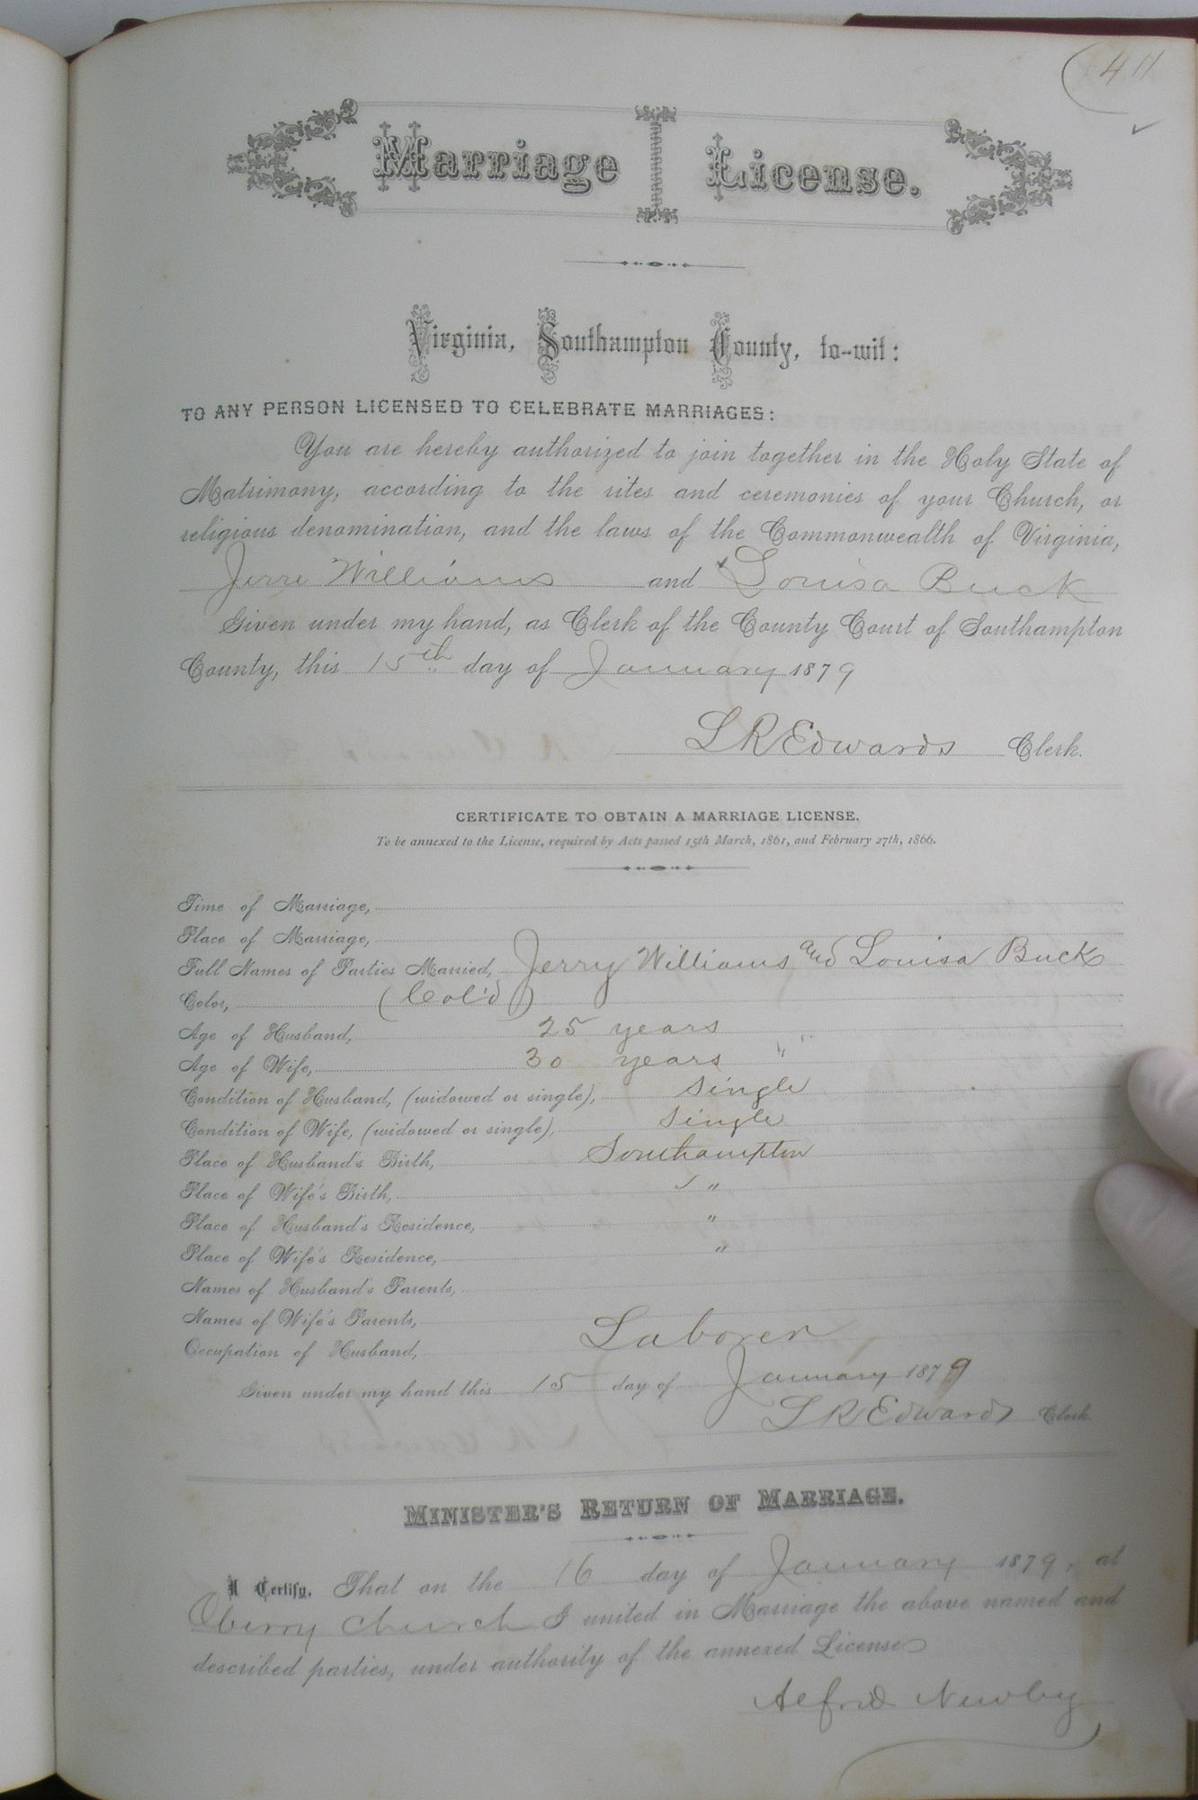 Marriage License.
Virginia, Southampton County, to-wit:
TO ANY PERSON LICENSED TO CELEBRATE MARRIAGES:
You are hereby authorized to join together in the Holy State of
Matrimony, according to the rites and ceremonies of your Church, or
religious denomination, and the laws of the Commonwealth of Virginia,
Jerre Williams and Louisa Buck
Given under my hand, as Clerk of the County Court of Southampton
County, this 15th day of January 1879
L R Edwards Clerk.
CERTIFICATE TO OBTAIN A MARRIAGE LICENSE.
To be annexed to the License, required by Acts passed 15th March, 1861, and February 27th, 1866.
Time of Marriage,
Place of Marriage,
Full Names of Parties Married, Jerry Williams and Louisa Buck
Color, (Col'd)
Age of Husband, 25 years
Age of Wife, 30 years "
Condition of Husband, (widowed or single), single
Condition of Wife, (widowed or single), single
Place of Husband's Birth, Southampton
Place of Wife's Birth, "
Place of Husband's Residence, "
Place of Wife's Residence, "
Names of Husband's Parents,
Names of Wife's Parents,
Occupation of Husband, Laborer
Given under my hand this 15 day of January 1879
L R Edwards Clerk.
MINISTER'S RETURN OF MARRIAGE.
I Certify, That on the 16 day of January 1879, at
Oberry Church I united in Marriage the above named and
described parties, under authority of the annexed License
Alfrid Newby